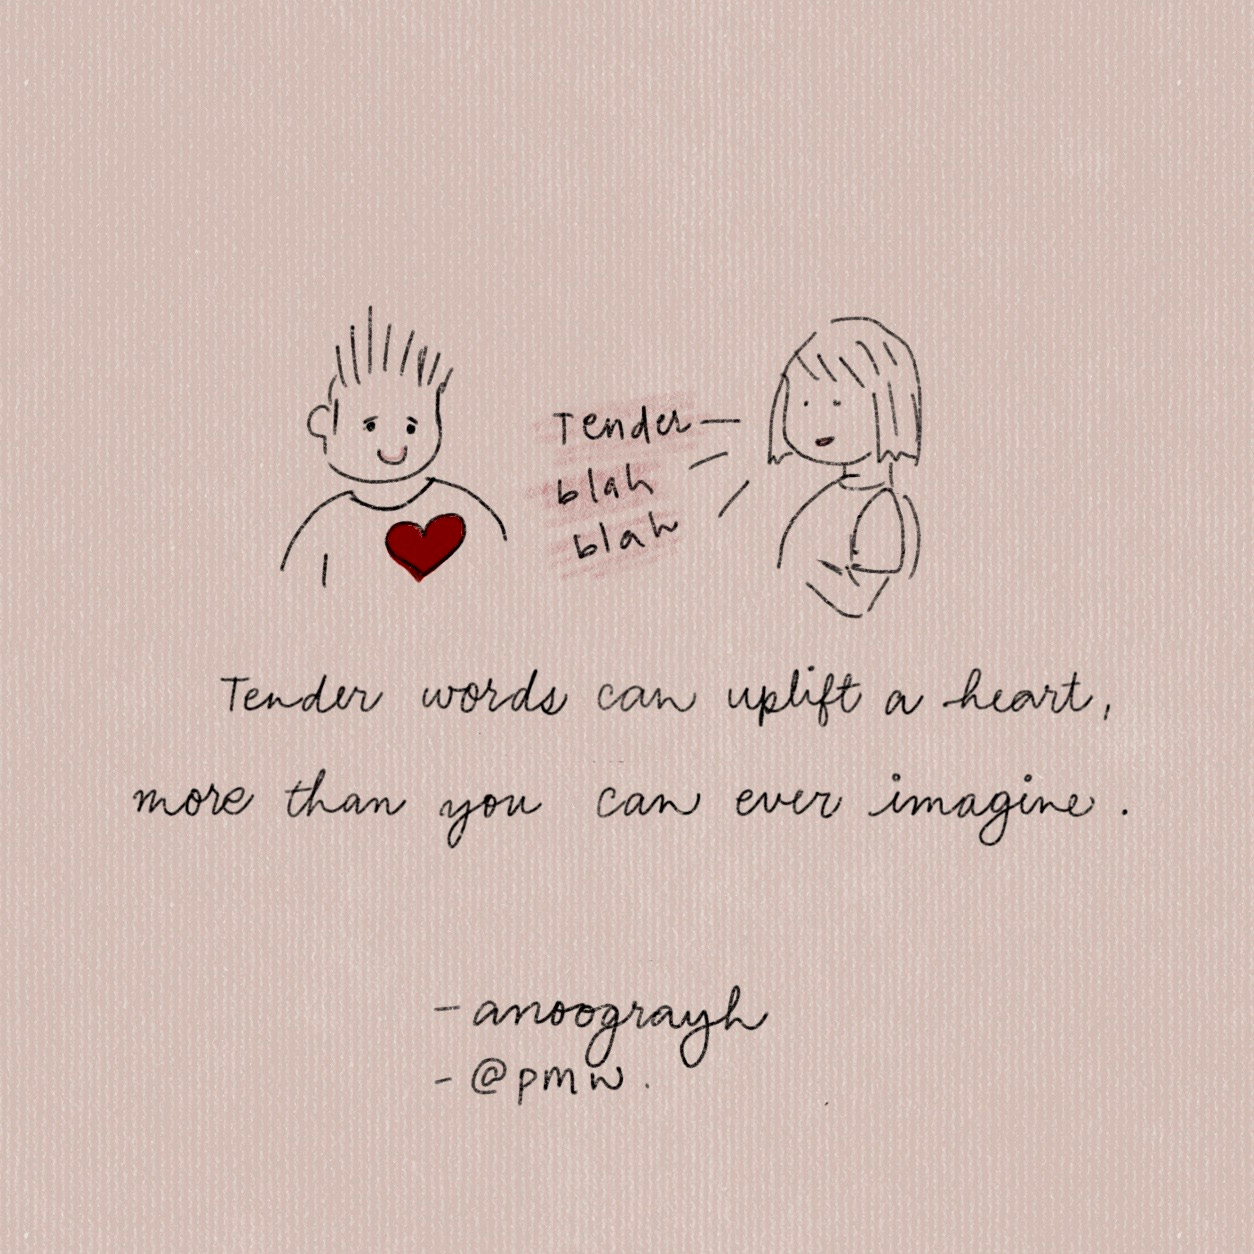 Tender
blah
blah
Tender words can uplift a heart,
more than you can ever imagine.
- anoograyh
- @pmw.